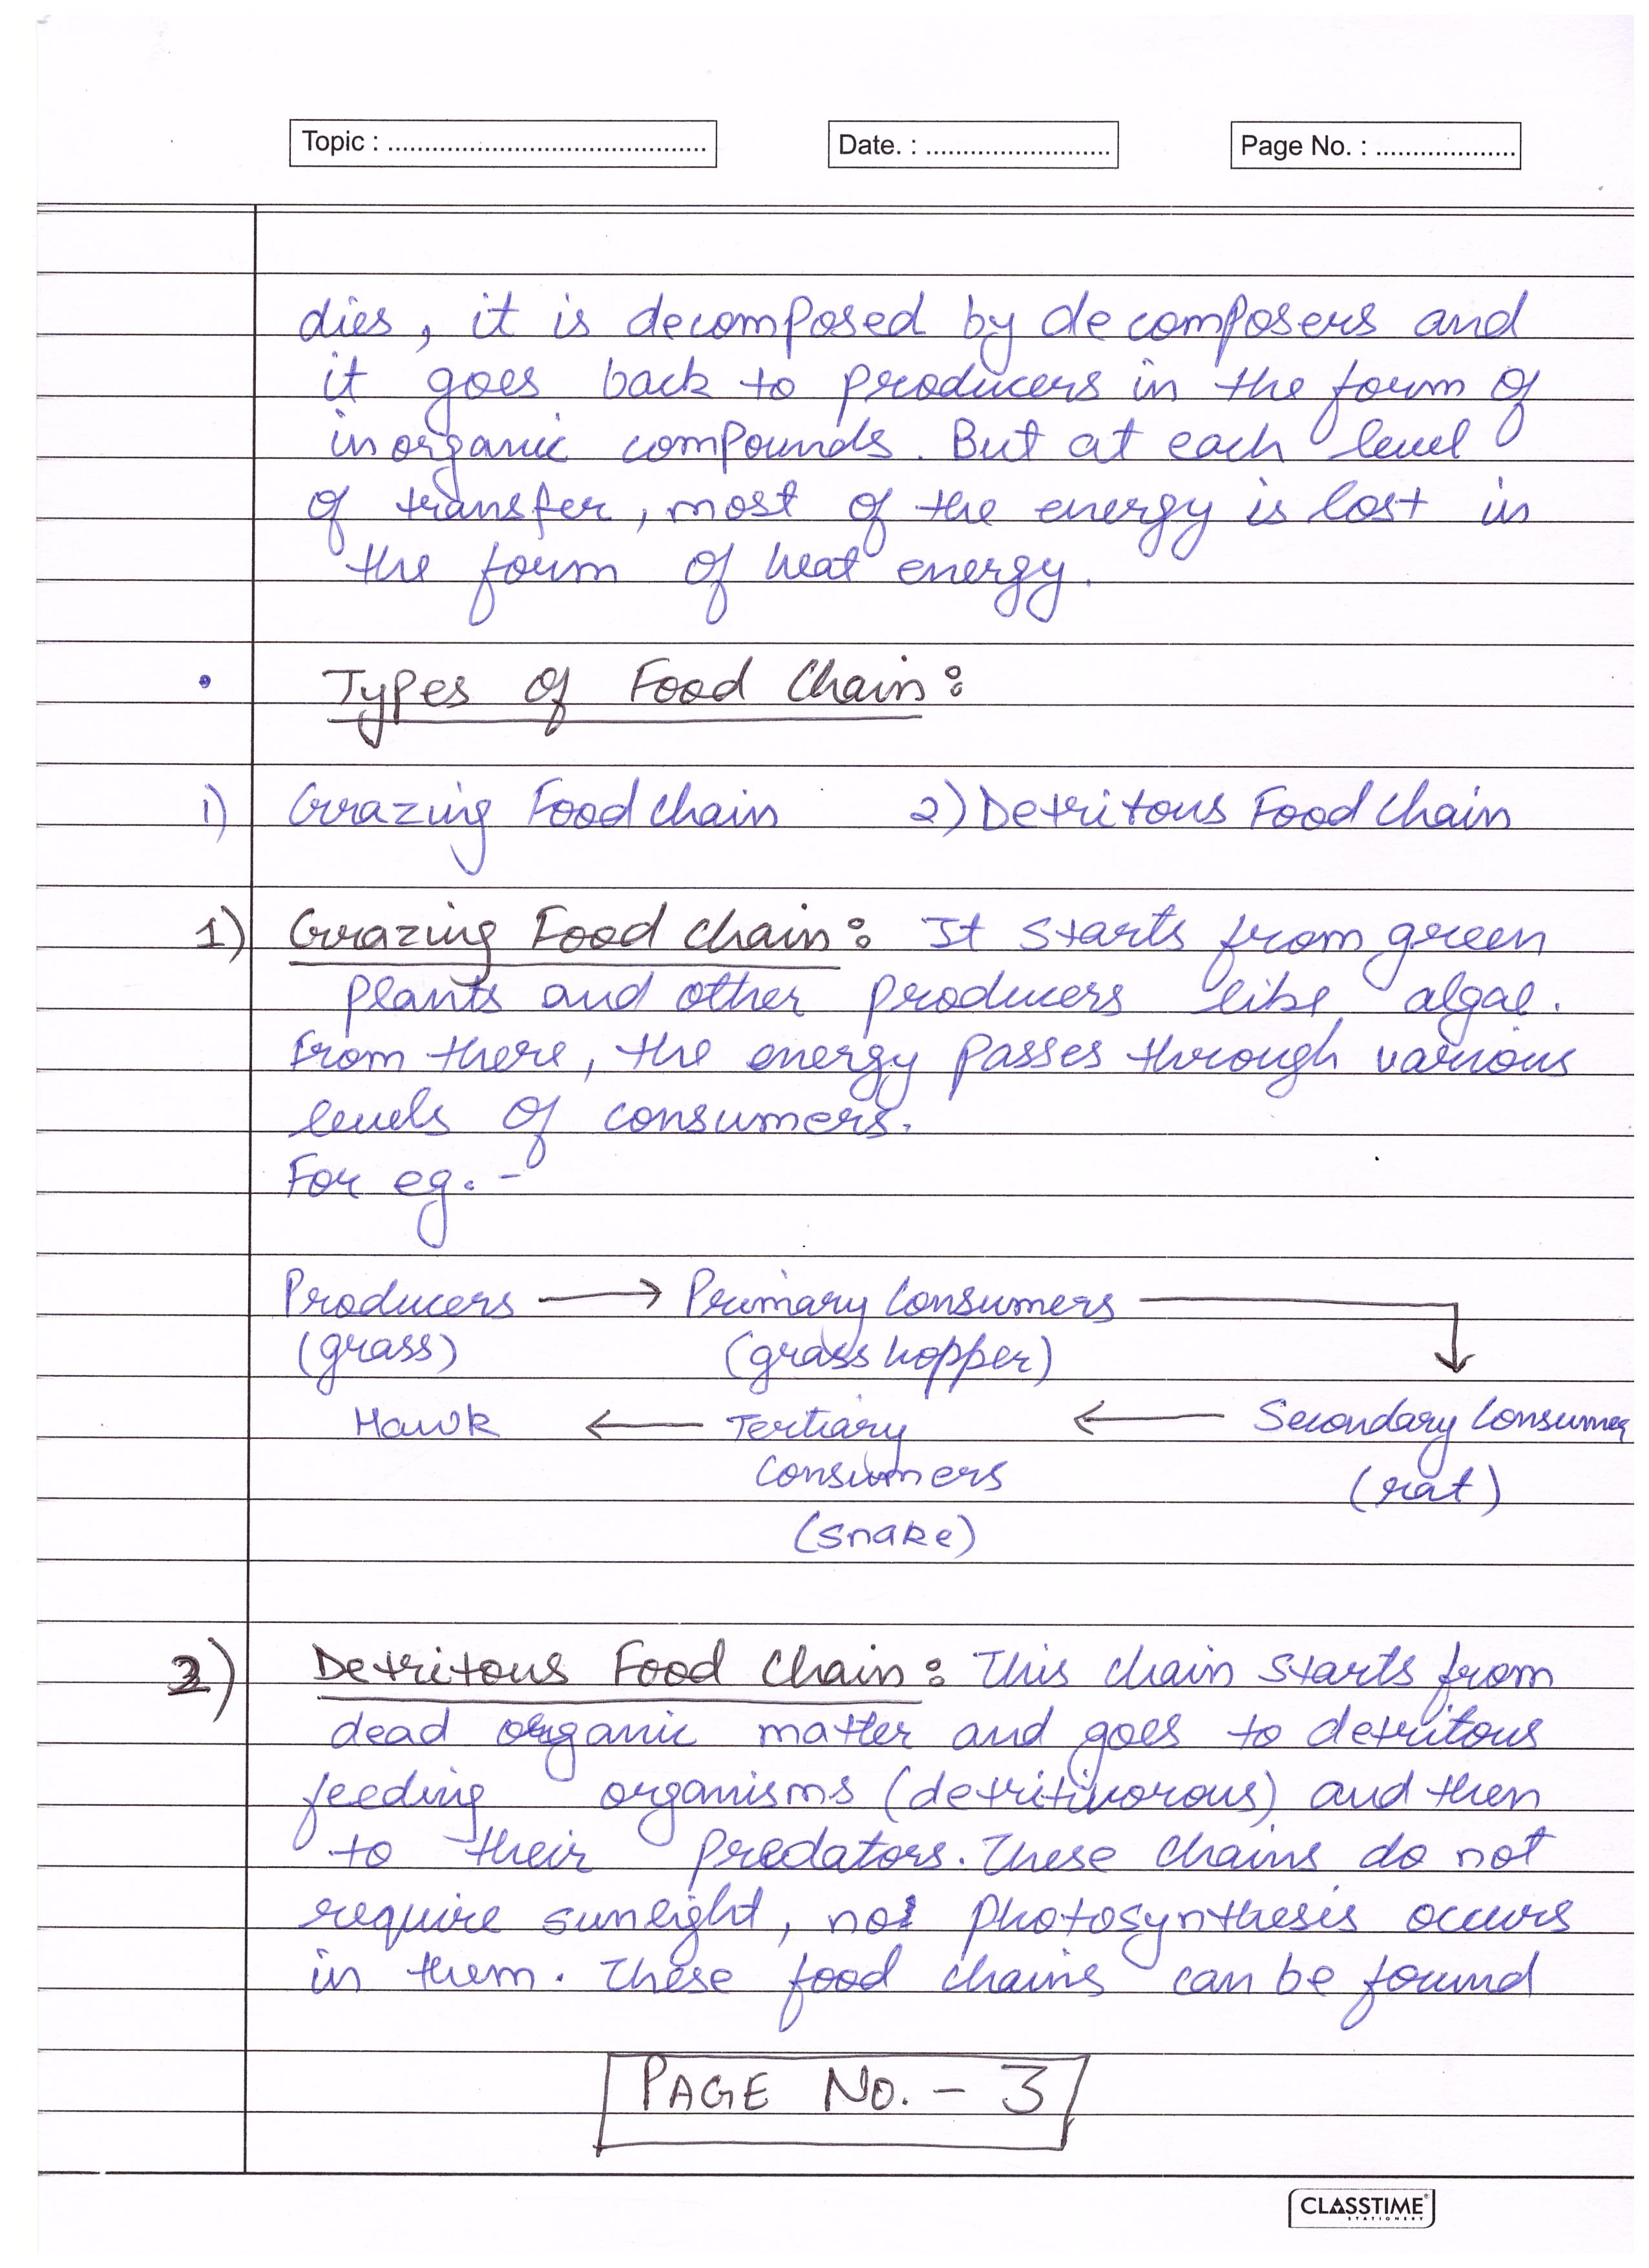 Topic : ........................................... Date. : ......................... Page No. : ...................
dies, it is decomposed by decomposers and
it goes back to producers in the form of
inorganic compounds. But at each level
of transfer, most of the energy is lost in
the form of heat energy.
• Types of Food Chain:
1) Grazing Food chain 2) Detritous Food Chain
1) Grazing Food chain: It starts from green
plants and other producers like algae.
From there, the energy passes through various
levels of consumers.
For eg. -
Producers → Primary Consumers
(grass) (grass hopper)
Hawk ← Tertiary ← Secondary Consumer
Consumers (rat)
(snake)
2) Detritous Food Chain: This chain starts from
dead organic matter and goes to detritous
feeding organisms (detritivorous) and then
to their predators. These chains do not
require sunlight, no photosynthesis occurs
in them. These food chains can be found
PAGE NO. - 3
CLASSTIME
STATIONERY